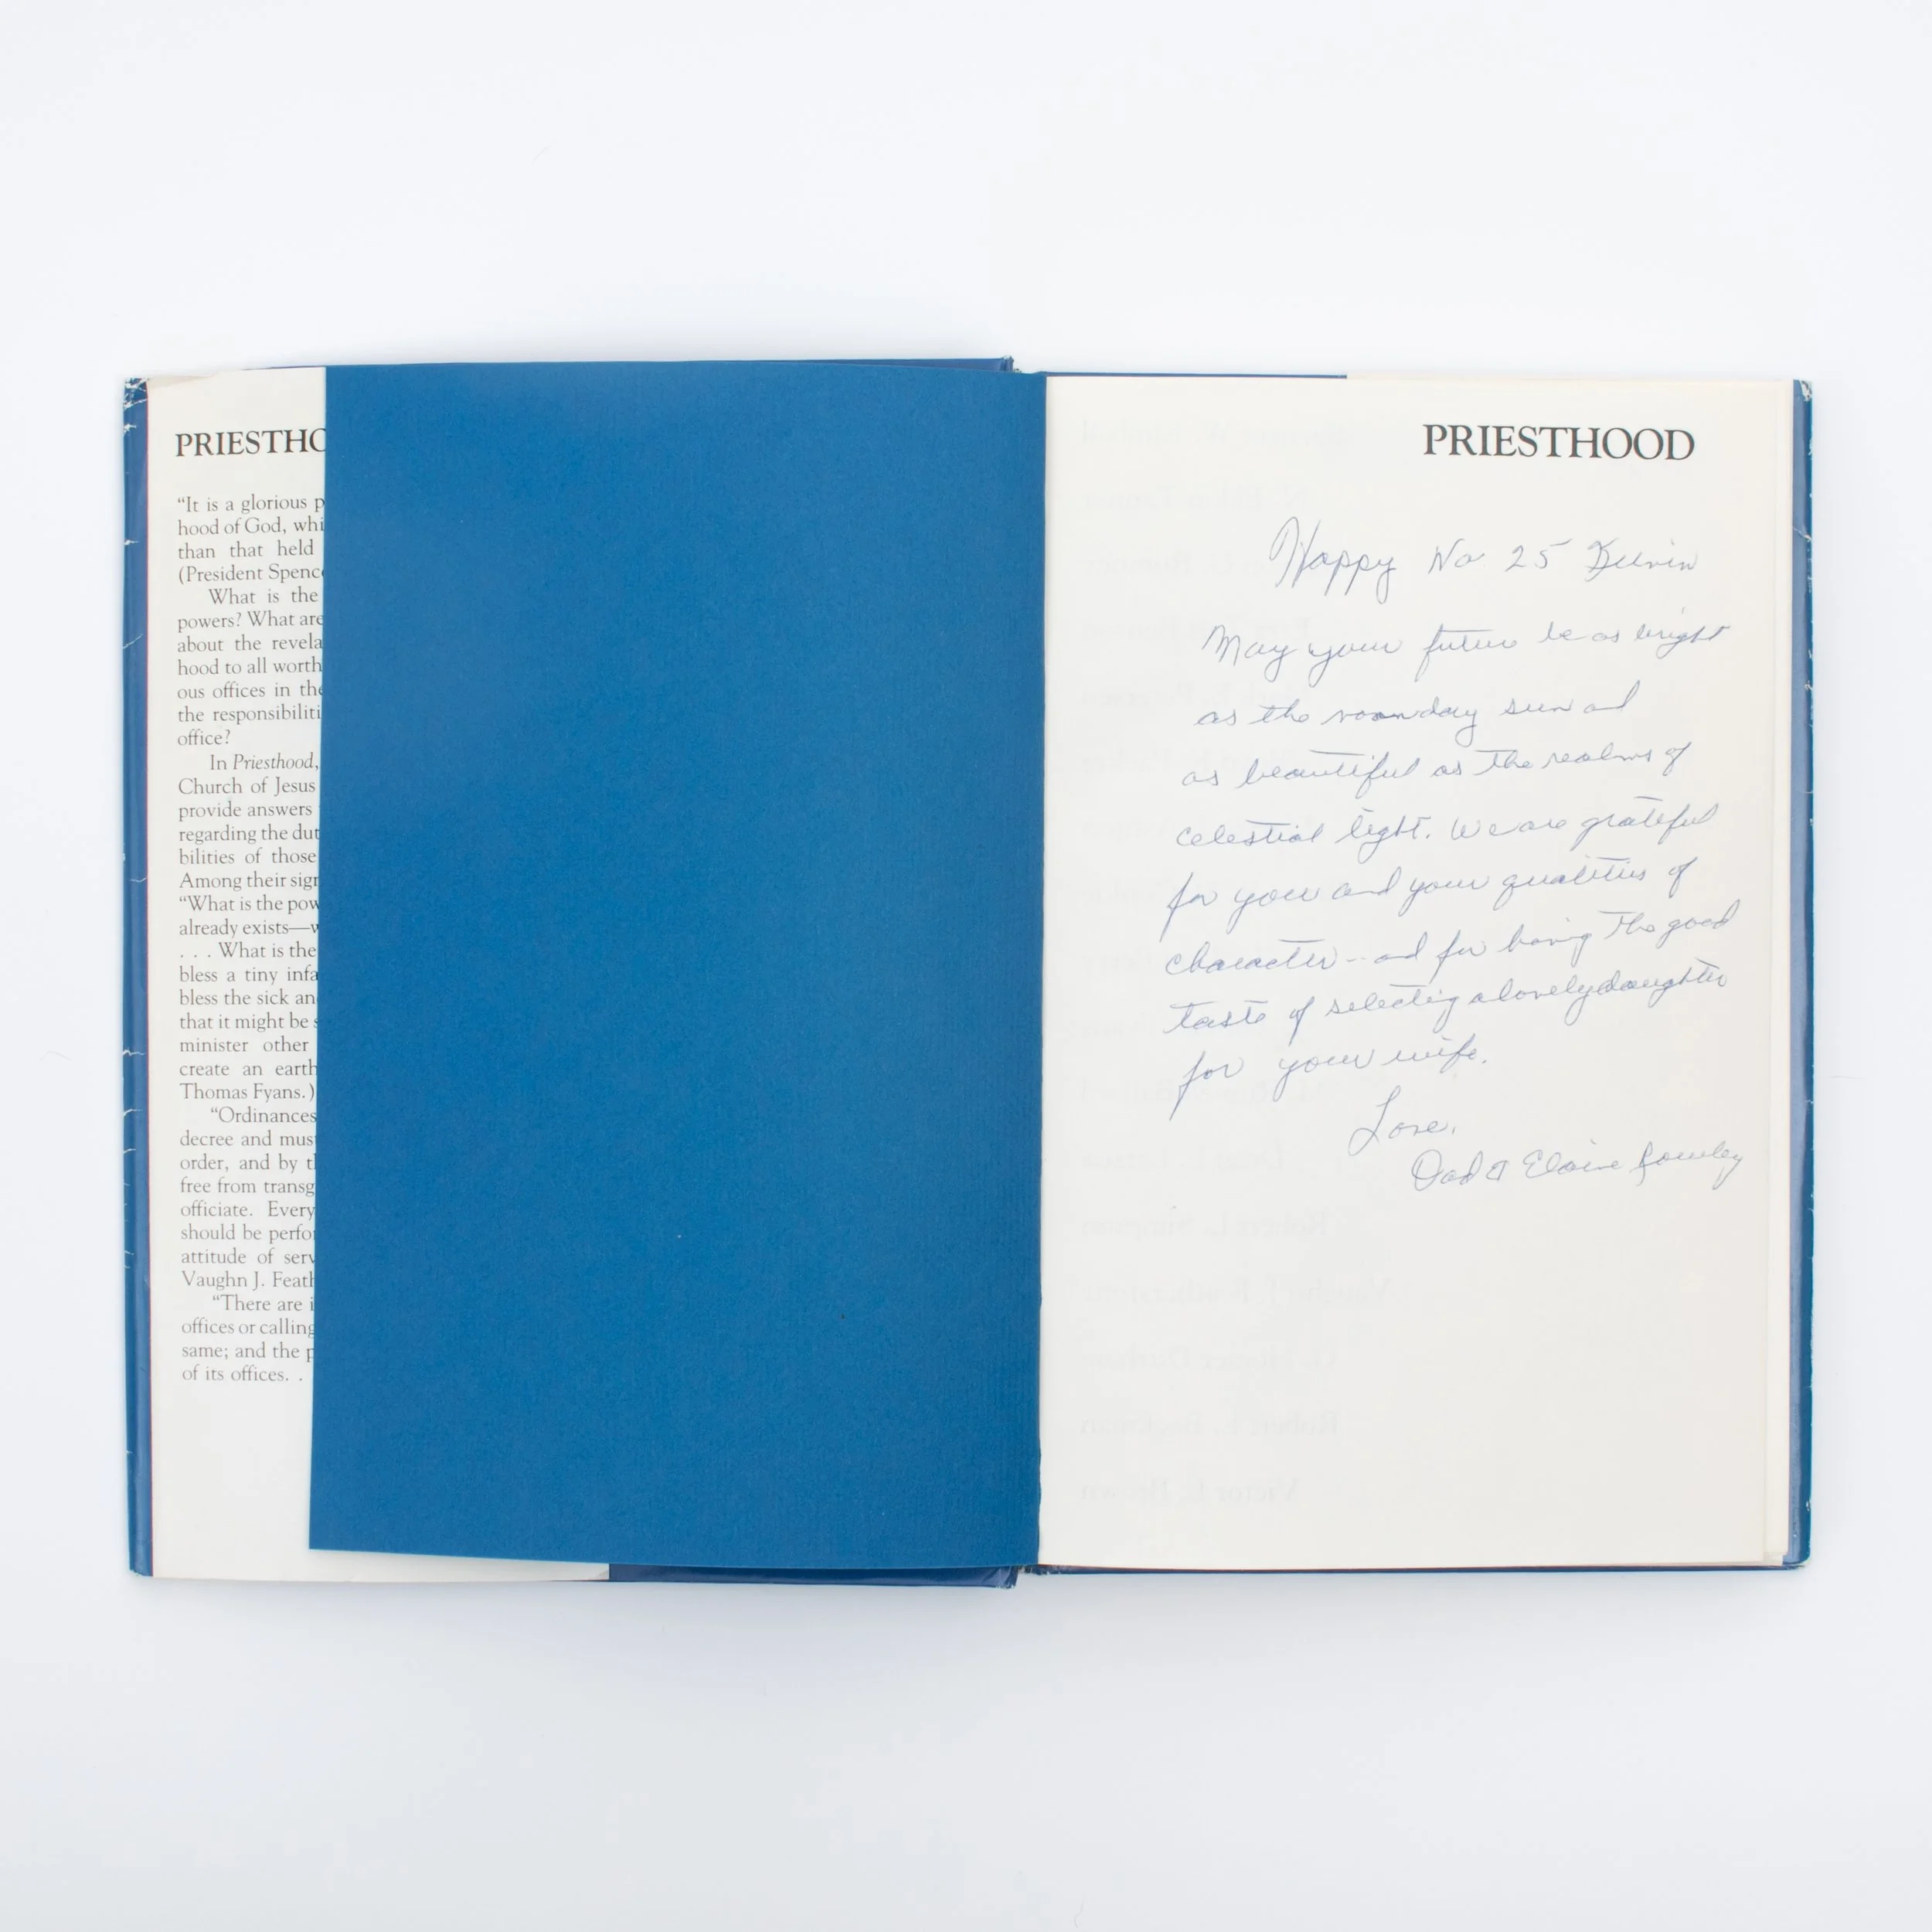 PRIESTHO
“It is a glorious p
hood of God, whi
than that held
(President Spenc
What is the
powers? What are
about the revela
hood to all worth
ous offices in the
the responsibiliti
office?
In Priesthood,
Church of Jesus
provide answers
regarding the dut
bilities of those
Among their sign
“What is the pow
already exists—w
. . . What is the
bless a tiny infa
bless the sick an
that it might be s
minister other
create an earth
Thomas Fyans.)
“Ordinances
decree and mus
order, and by th
free from transg
officiate. Every
should be perfor
attitude of serv
Vaughn J. Feath
“There are i
offices or calling
same; and the p
of its offices. .
PRIESTHOOD
Happy No 25
May your future be as bright
as the noonday sun and
as beautiful as the realms of
celestial light. We are grateful
for you and your qualities of
character -- and for having the good
taste of selecting a lovely daughter
for your wife.
Love,
Dad & Elaine
Robert L. Simpson
Victor L. Brown